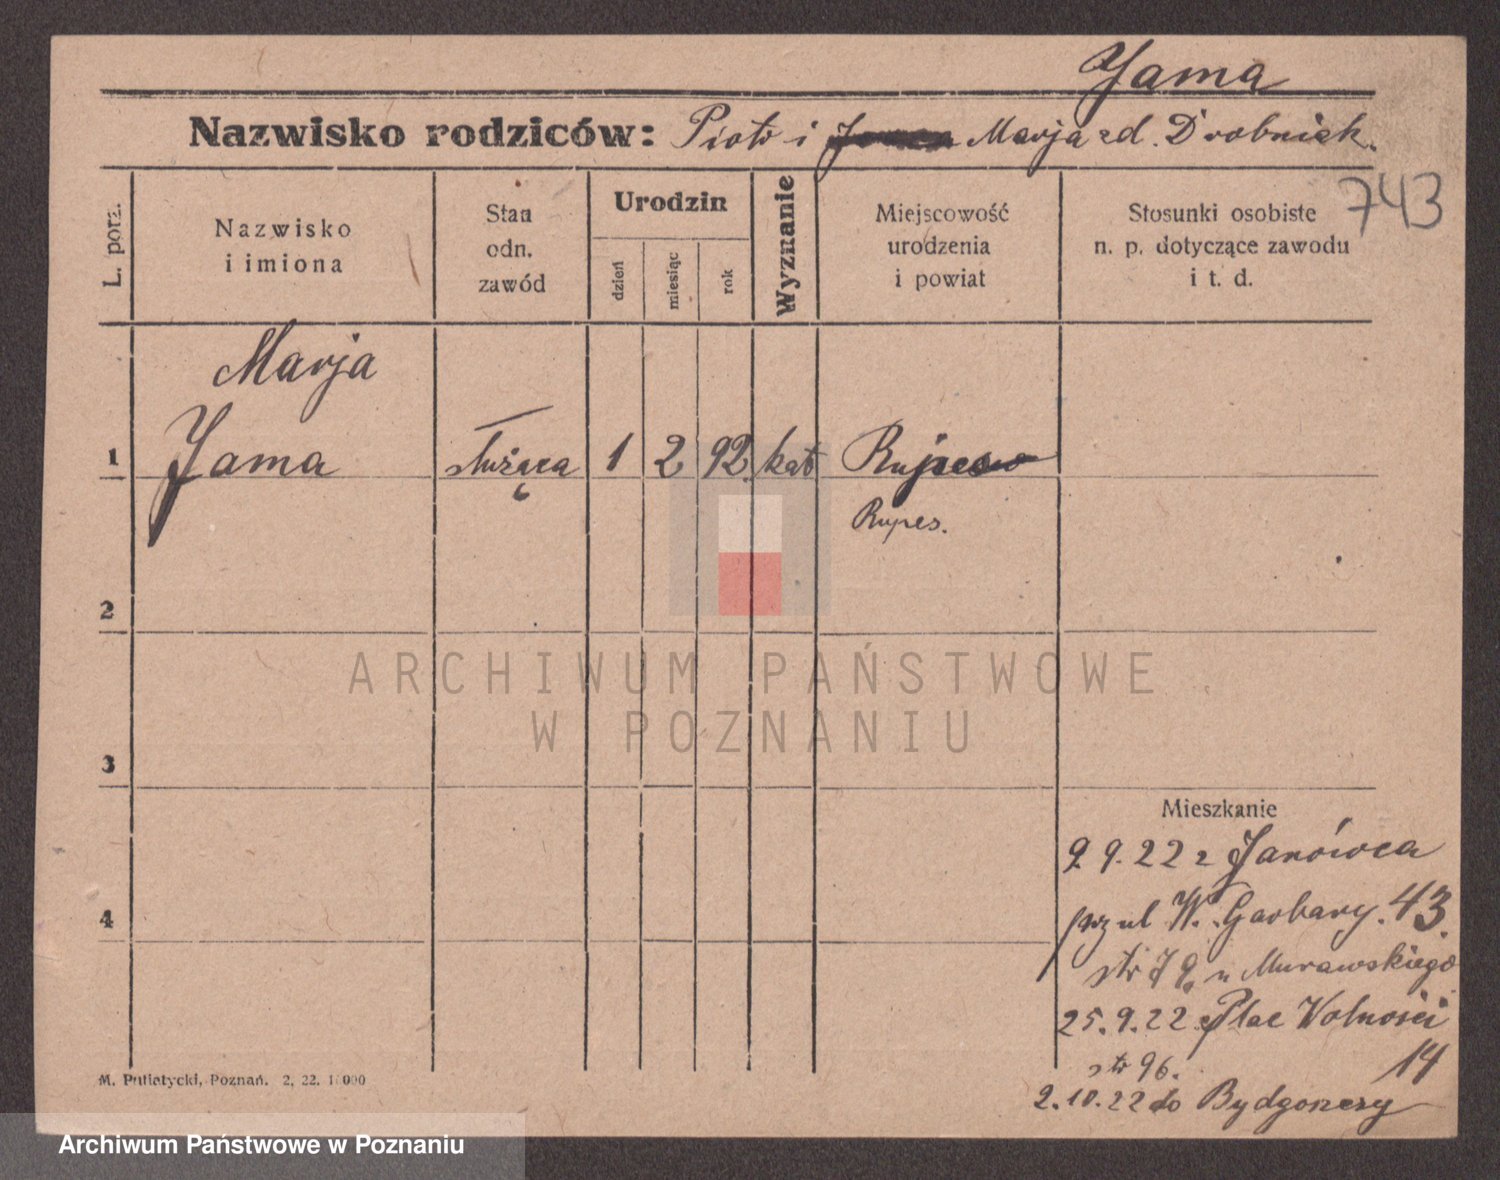 Yama
Nazwisko rodziców: Piotr i Marja zd. Drobniak.
743
L. porz.
Nazwisko
i imiona
Stan
odn.
zawód
Urodzin
dzień
miesiąc
rok
Wyznanie
Miejscowość
urodzenia
i powiat
Stosunki osobiste
n. p. dotyczące zawodu
i t. d.
Marja
1 Yama służąca 1 2 92 kat
2
3
4
Mieszkanie
9.22 z Janówca
przy ul W. Garbary. 43.
str u Murawskiego
25.9.22 Plac Wolności
14
str 96.
2.10.22 do Bydgoszczy
M. Putiatycki, Poznań. 2, 22. 1000
ARCHIWUM PAŃSTWOWE
W POZNANIU
Archiwum Państwowe w Poznaniu